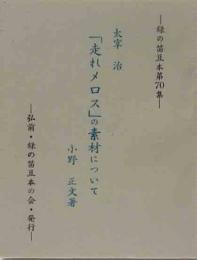 ―緑の笛豆本第70集―
太宰 治
「走れメロス」の素材について
小野 正文著
―弘前・緑の笛豆本の会・発行―